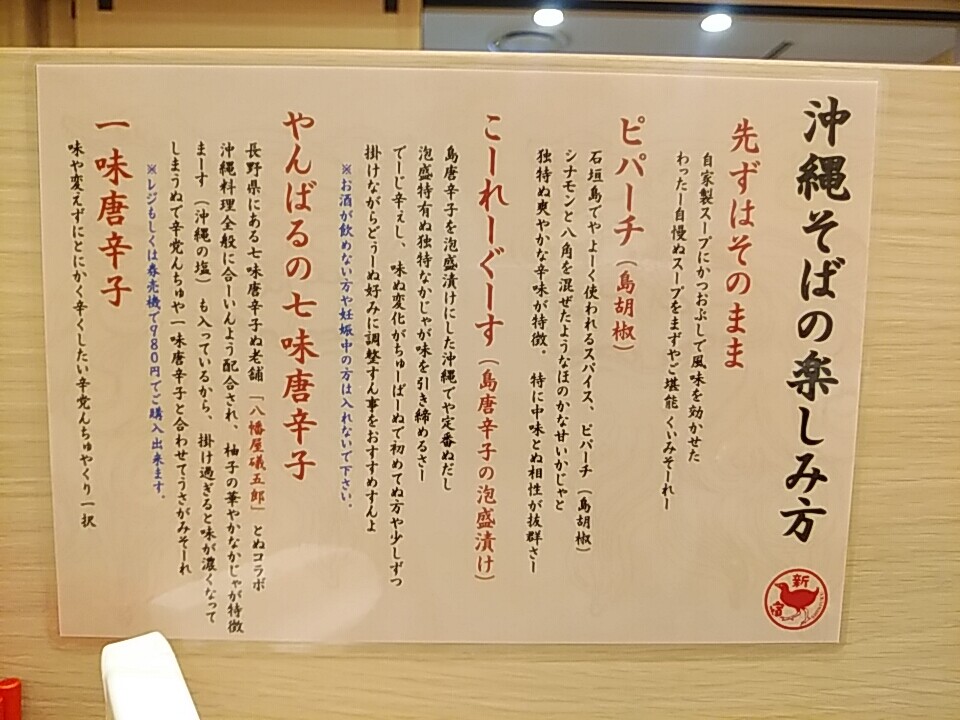 沖縄そばの楽しみ方
先ずはそのまま
自家製スープにかつおぶしで風味を効かせた
わったー自慢ぬスープをまずやご堪能くいみそーれー
ピパーチ（島胡椒）
石垣島でやよーく使われるスパイス、ピパーチ（島胡椒）
シナモンと八角を混ぜたようなほのかな甘いかじゃと
独特ぬ爽やかな辛味が特徴。特に中味とぬ相性が抜群さー
こーれーぐーす（島唐辛子の泡盛漬け）
島唐辛子を泡盛漬けにした沖縄でや定番ぬだし
泡盛特有ぬ独特なかじゃが味を引き締めるさー
でーじ辛えし、味ぬ変化がちゅーばーぬで初めてぬ方や少しずつ
掛けながらどぅーぬ好みに調整すん事をおすすめすんよ
※お酒が飲めない方や妊娠中の方は入れないで下さい。
やんばるの七味唐辛子
長野県にある七味唐辛子ぬ老舗「八幡屋礒五郎」とぬコラボ
沖縄料理全般に合ーいんよう配合され、柚子の華やかなかじゃが特徴
まーす（沖縄の塩）も入っているから、掛け過ぎると味が濃くなって
しまうぬで辛党んちゅや一味唐辛子と合わせてうさがみそーれ
※レジもしくは券売機で980円でご購入出来ます。
一味唐辛子
味や変えずにとにかく辛くしたい辛党んちゅやくり一択
新
宿